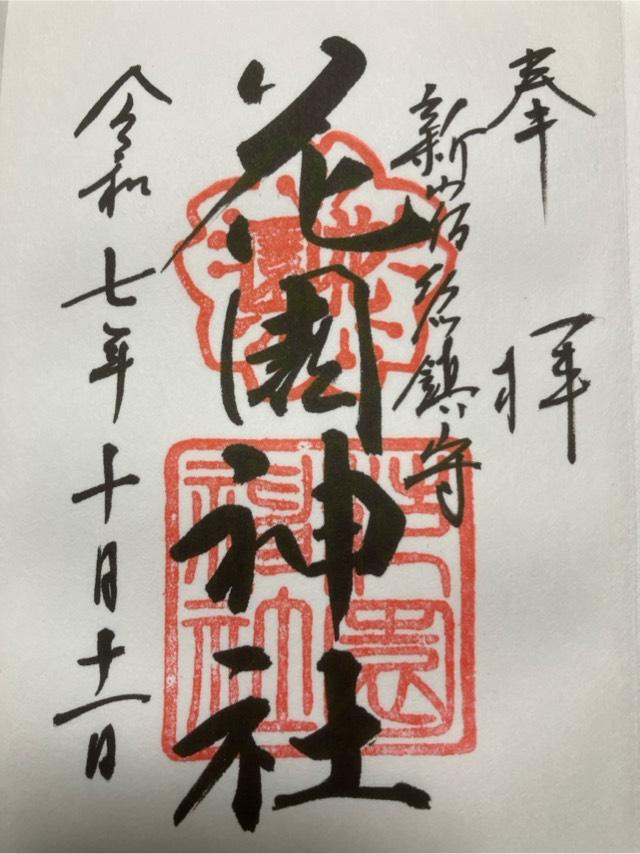 奉拝
新宿総鎮守
花園神社
花園
花園神社
令和七年十月十一日